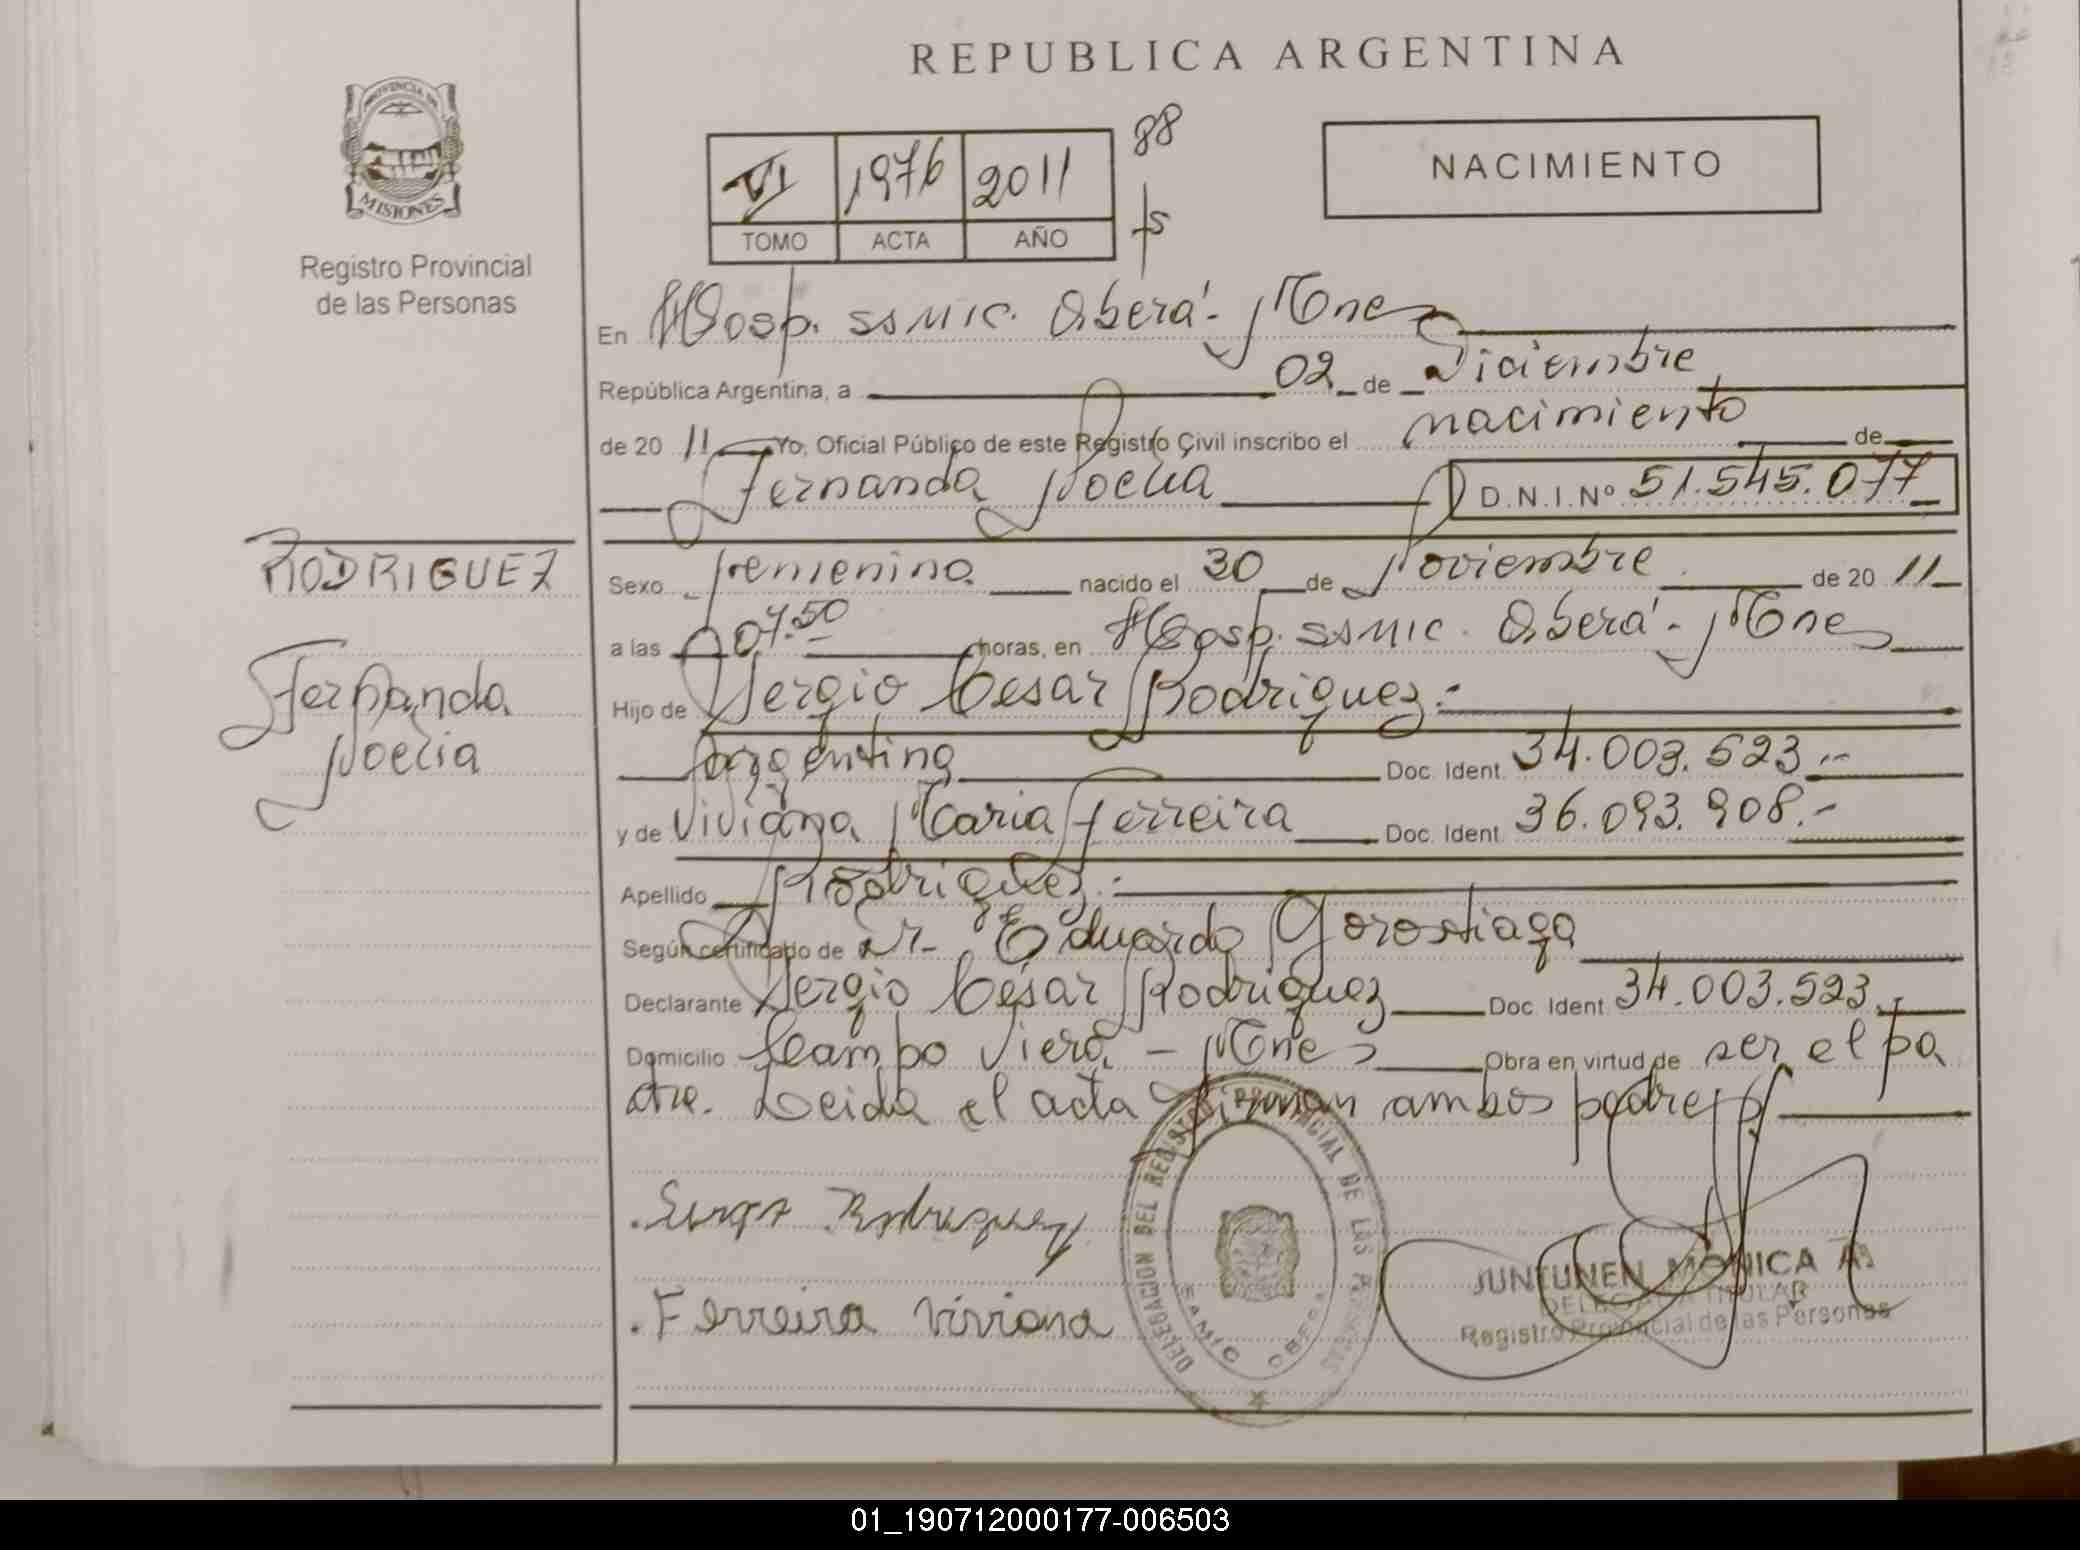 REPUBLICA ARGENTINA
PROVINCIA DE
MISIONES
Registro Provincial
de las Personas
VI 1976 2011
TOMO ACTA AÑO
88
fs
NACIMIENTO
En Hosp. SSMIC. Oberá - Mnes
República Argentina, a 02 de Diciembre
de 20 11 Yo, Oficial Público de este Registro Civil inscribo el nacimiento de
Fernanda Noelia D.N.I.Nº 51.545.077
RODRIGUEZ
Fernanda
Noelia
Sexo femenino nacido el 30 de Noviembre de 20 11
a las 07.50 horas, en Hosp. SSMIC. Oberá - Mnes
Hijo de Sergio Cesar Rodriguez.-
Argentina Doc. Ident. 34.003.523.-
y de Viviana Maria Ferreira Doc. Ident. 36.093.908.-
Apellido Rodriguez.-
Según certificado de Dr. Eduardo Gorostiaga
Declarante Sergio César Rodriguez Doc. Ident. 34.003.523.-
Domicilio Campo Viera - Mnes Obra en virtud de ser el pa
dre. Leida el acta firman ambos padres
Sergio Rodriguez
Ferreira Viviana
DELEGACION DEL REGISTRO PROVINCIAL DE LAS PERSONAS
SAMIC OBERA
JUNTUNEN MONICA A.
DELEGADA TITULAR
Registro Provincial de las Personas
01_190712000177-006503